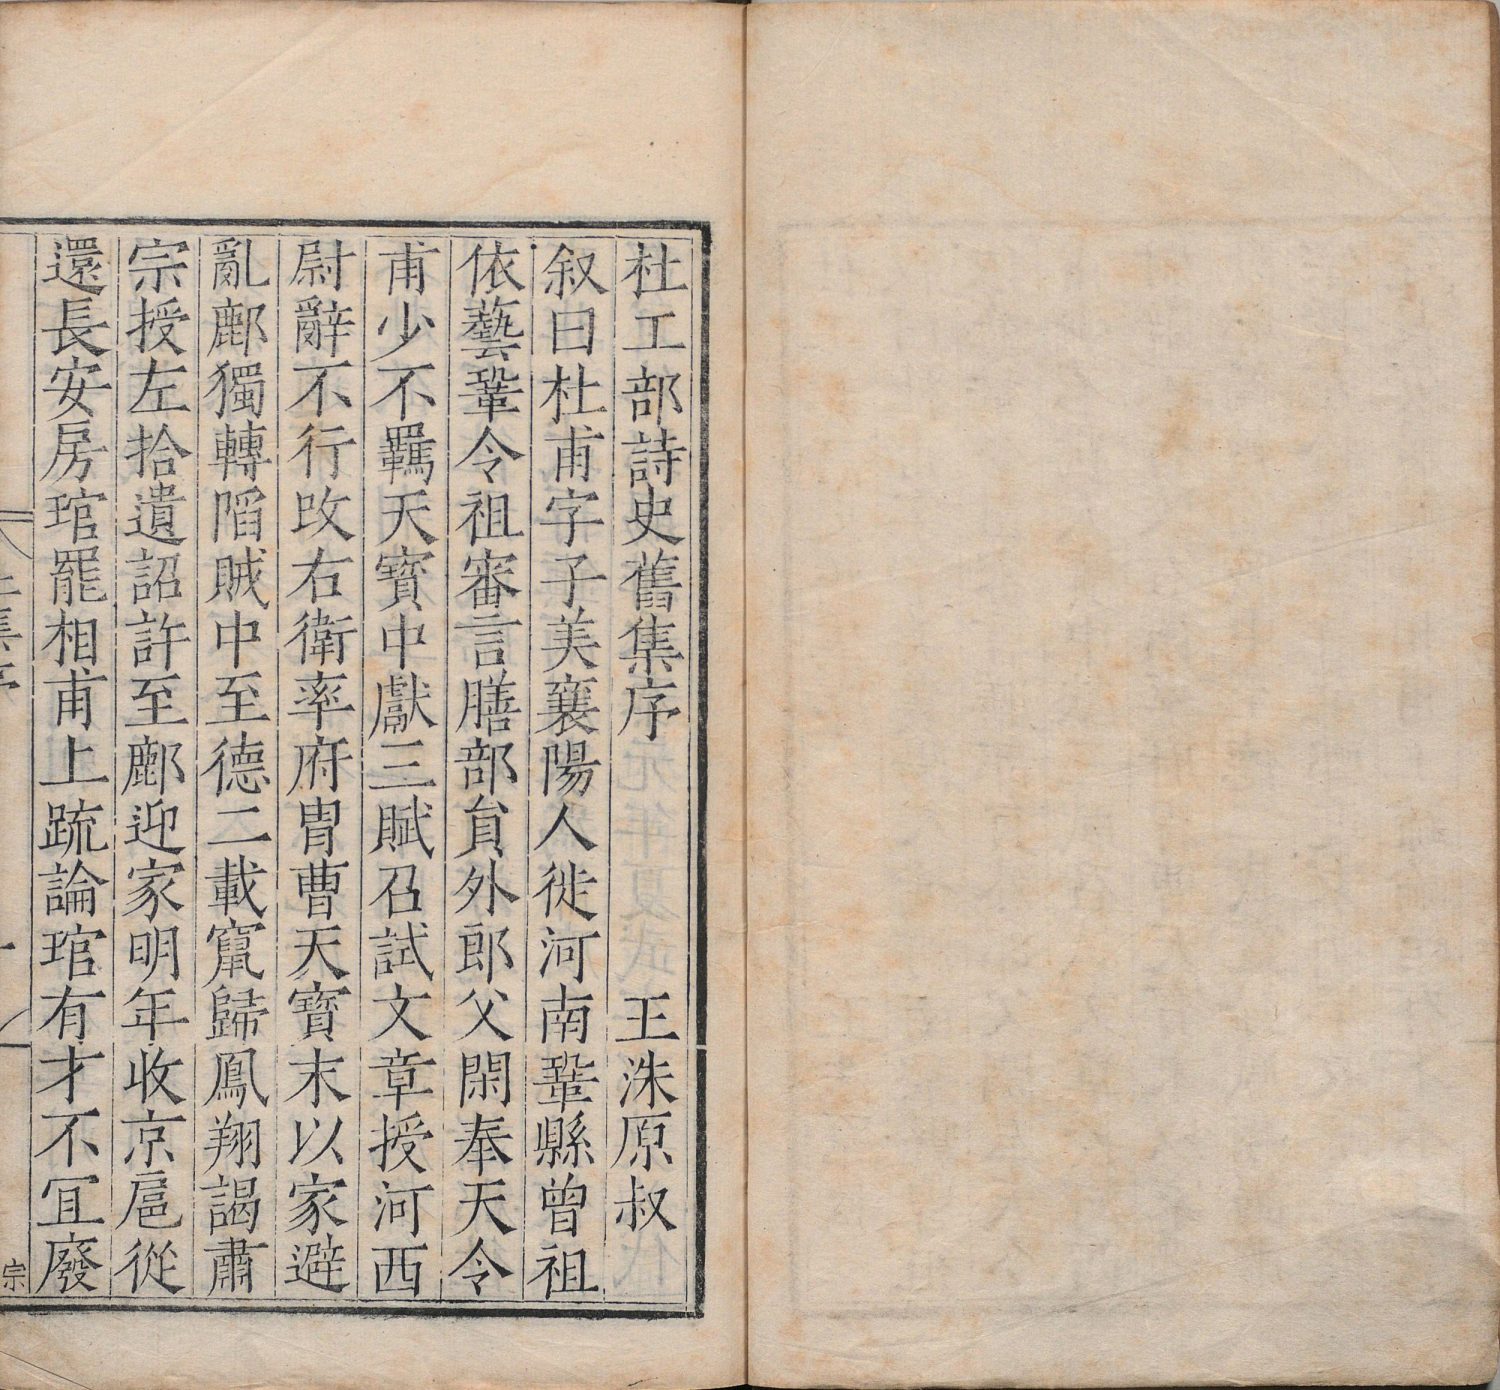 杜工部詩史舊集序 王洙原叔
叙曰杜甫字子美襄陽人徙河南鞏縣曾祖
依藝鞏令祖審言膳部貟外郎父閑奉天令
甫少不羈天寶中獻三賦召試文章授河西
尉辭不行改右衛率府胄曹天寶末以家避
亂鄜獨轉陷賊中至德二載竄歸鳳翔謁肅
宗授左拾遺詔許至鄜迎家明年收京扈從
還長安房琯罷相甫上疏論琯有才不宜廢
宗